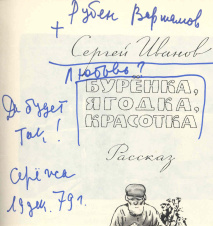 + Рубен Варшамов
Сергей Иванов
Любовь?
БУРЁНКА,
ЯГОДКА,
КРАСОТКА
Рассказ
Да будет
так!
Серёжа
19 дек. 79 г.